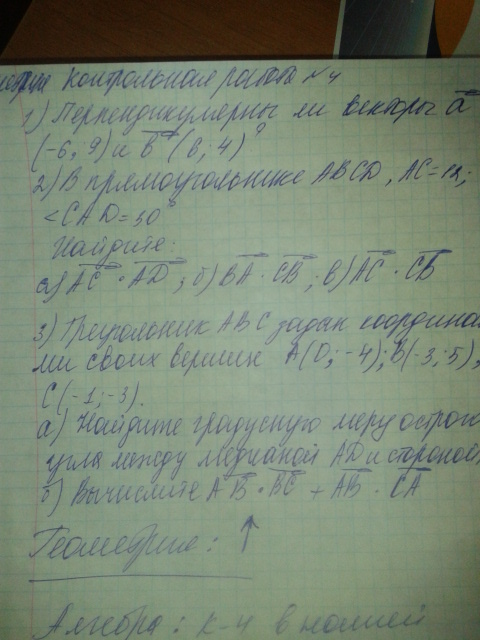 Контрольная работа №4
1) Перпендикулярны ли векторы a
(-6, 9) и b (6, 4)?
2) В прямоугольнике ABCD, AC=12;
<CAD=30°
Найдите:
а) AC · AD ; б) BA · CB ; в) AC · CB
3) Треугольник ABC задан координата
ми своих вершин A(0; -4); B(-3; 5);
C(-1; -3).
а) Найдите градусную меру острого
угла между медианой AD и стороной
б) Вычислите AB · BC + AB · CA
Геометрия: ↑
Алгебра: К-4 в